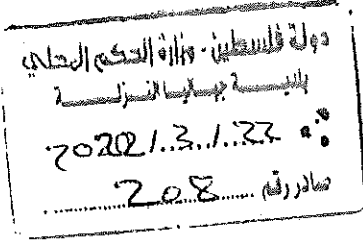 دولة فلسطين - وزارة الحكم المحلي
بلديـــة جبـاليا النـزلـــة
2022/3/22
صادر رقم 208